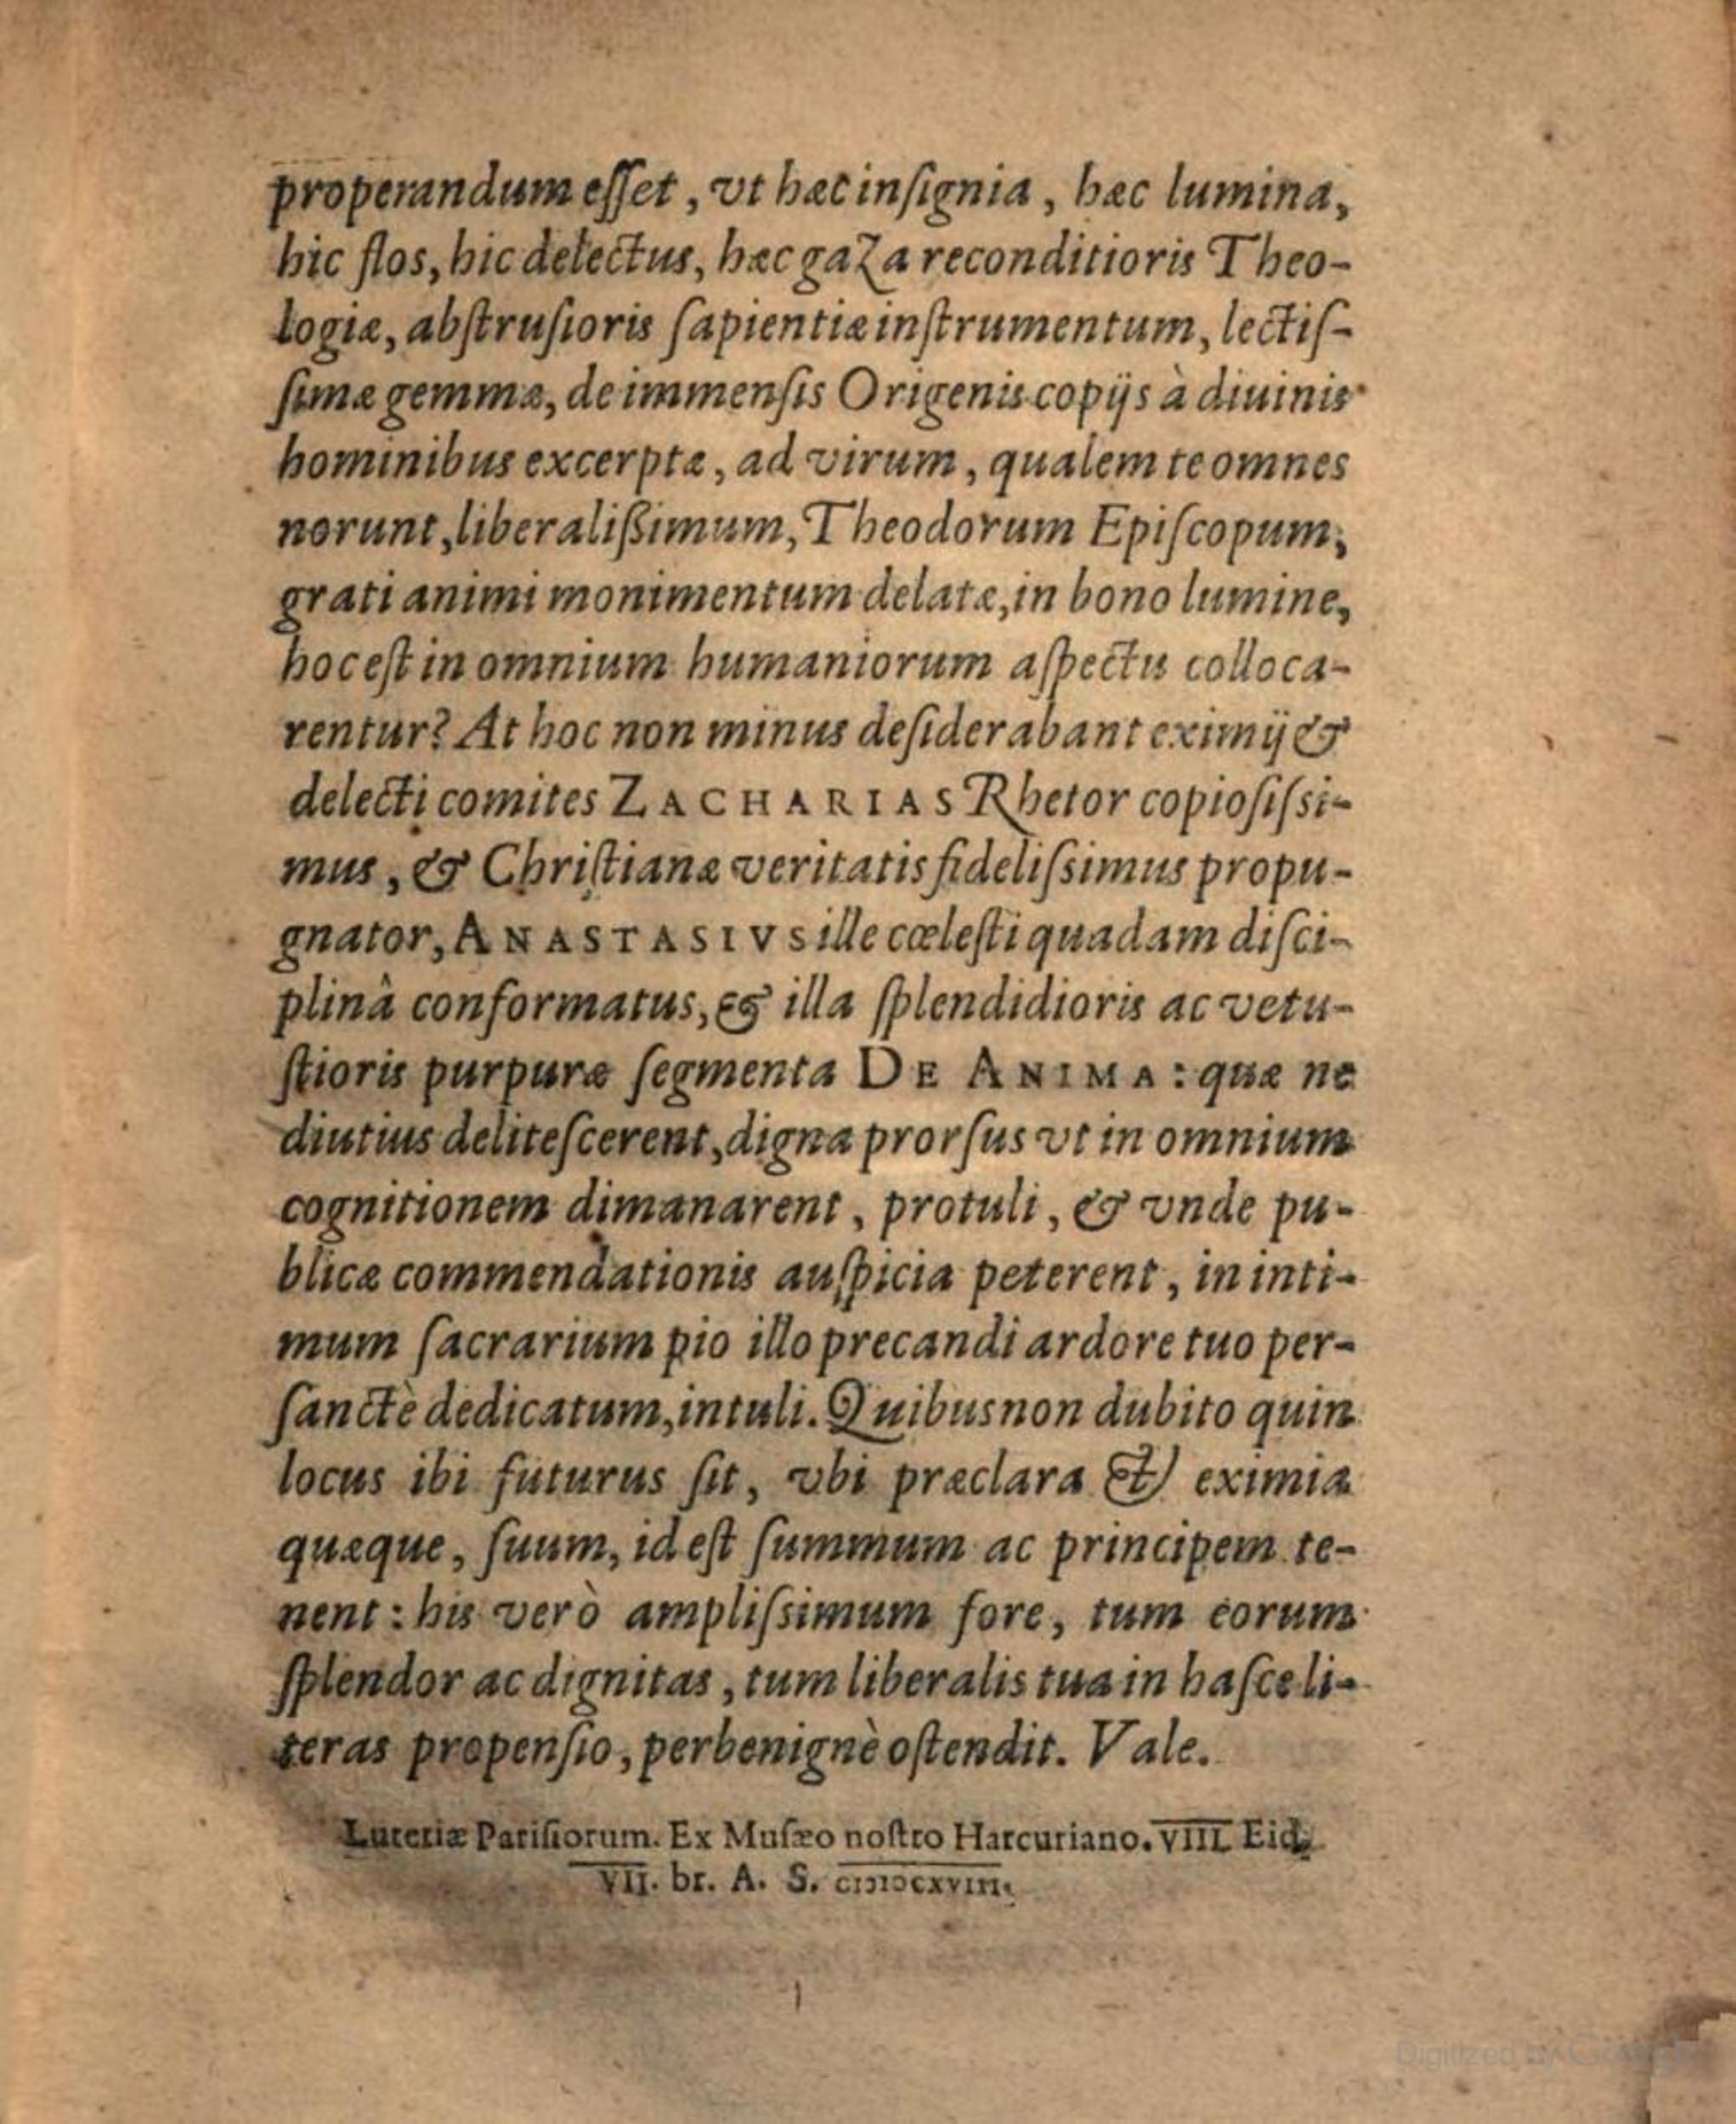 properandum eſſet, vt hæc inſignia, hæc lumina,
hic flos, hic delectus, hæc gaza reconditioris Theo-
logiæ, abſtruſioris ſapientiæ inſtrumentum, lectiſ-
ſimæ gemmæ, de immenſis Origenis copijs à diuinis
hominibus excerptæ, ad virum, qualem te omnes
norunt, liberalißimum, Theodorum Epiſcopum,
grati animi monimentum delatæ, in bono lumine,
hoc eſt in omnium humaniorum aſpectu colloca-
rentur? At hoc non minus deſiderabant eximij &
delecti comites ZACHARIAS Rhetor copioſiſsi-
mus, & Chriſtianæ veritatis fideliſsimus propu-
gnator, ANASTASIVS ille cœleſti quadam diſci-
plinâ conformatus, & illa ſplendidioris ac vetu-
ſtioris purpuræ ſegmenta DE ANIMA: quæ ne
diutius deliteſcerent, digna prorſus vt in omnium
cognitionem dimanarent, protuli, & vnde pu-
blicæ commendationis auſpicia peterent, in inti-
mum ſacrarium pio illo precandi ardore tuo per-
ſanctè dedicatum, intuli. Quibus non dubito quin
locus ibi futurus ſit, vbi præclara & eximia
quæque, ſuum, id eſt ſummum ac principem te-
nent: his verò ampliſsimum fore, tum eorum
ſplendor ac dignitas, tum liberalis tua in haſce li-
teras propenſio, perbenignè oſtendit. Vale.
Lutetiæ Pariſiorum. Ex Muſæo noſtro Harcuriano. VIII. Eid.
VII. br. A. S. cIɔIɔcxVIII.
Digitized by Google